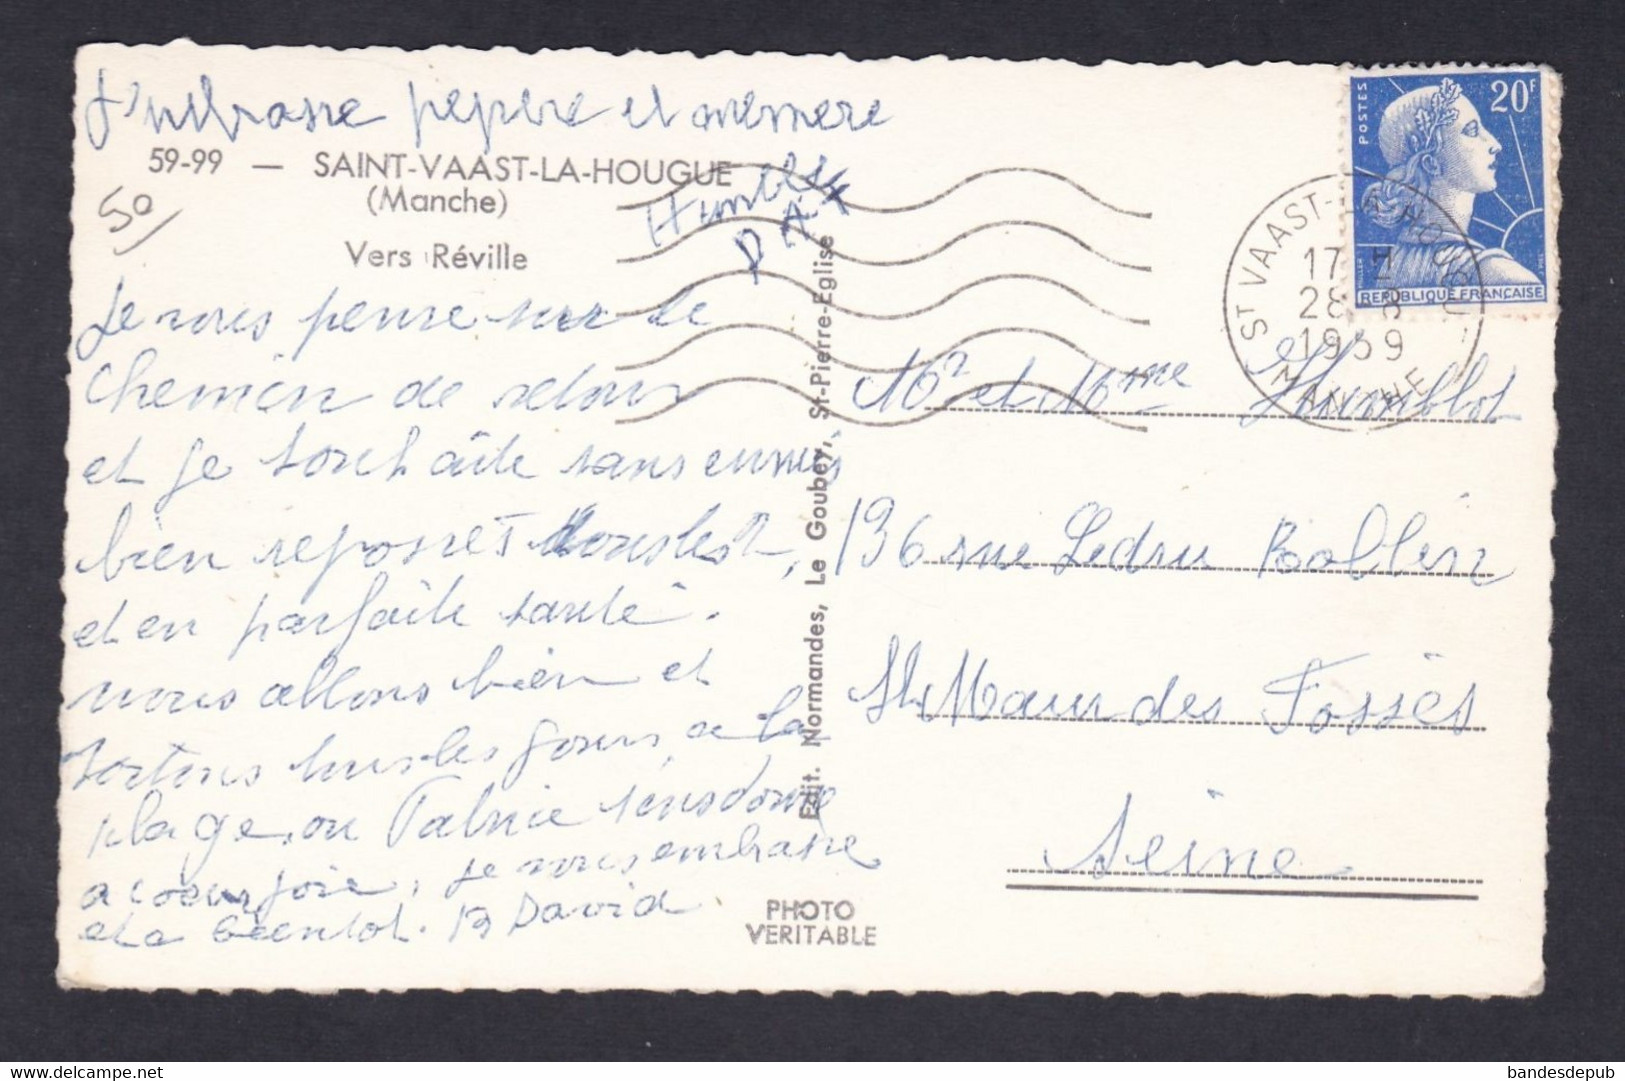 J'embrasse pepere et memere
59-99 — SAINT-VAAST-LA-HOUGUE
(Manche)
Vers Réville
50
Je vous pense sur le
chemin de retour
et je souhaite sans ennuis
bien reposses
et en parfaite santé.
nous allons bien et
sortons tous les jours, a la
plage, ou Fabrice
a coeur joie, je vous embrasse
et a bientot. David
PHOTO
VERITABLE
Edit. Normandes, Le Goubey, St-Pierre-Eglise
POSTES
20F
REPUBLIQUE FRANÇAISE
ST VAAST-LA-HOUGUE
17 H
28 - 8
1959
MANCHE
Mr et Mme Humblot
136 rue Ledru Rollin
St Maur des Fossés
Seine
bandesdepub